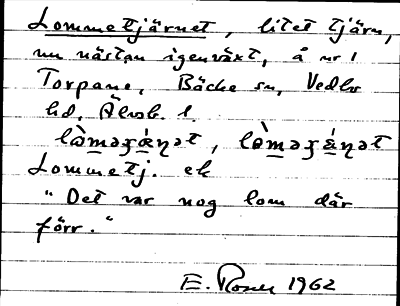 Lommetjärnet, litet tjärn,
nu nästan igenväxt, å nr 1
Torpane, Bäcke sn, Vedbo
hd, Älvsb. l.
Lommetj. ek
"Det var nog lom där
förr."
E. Rosen 1962